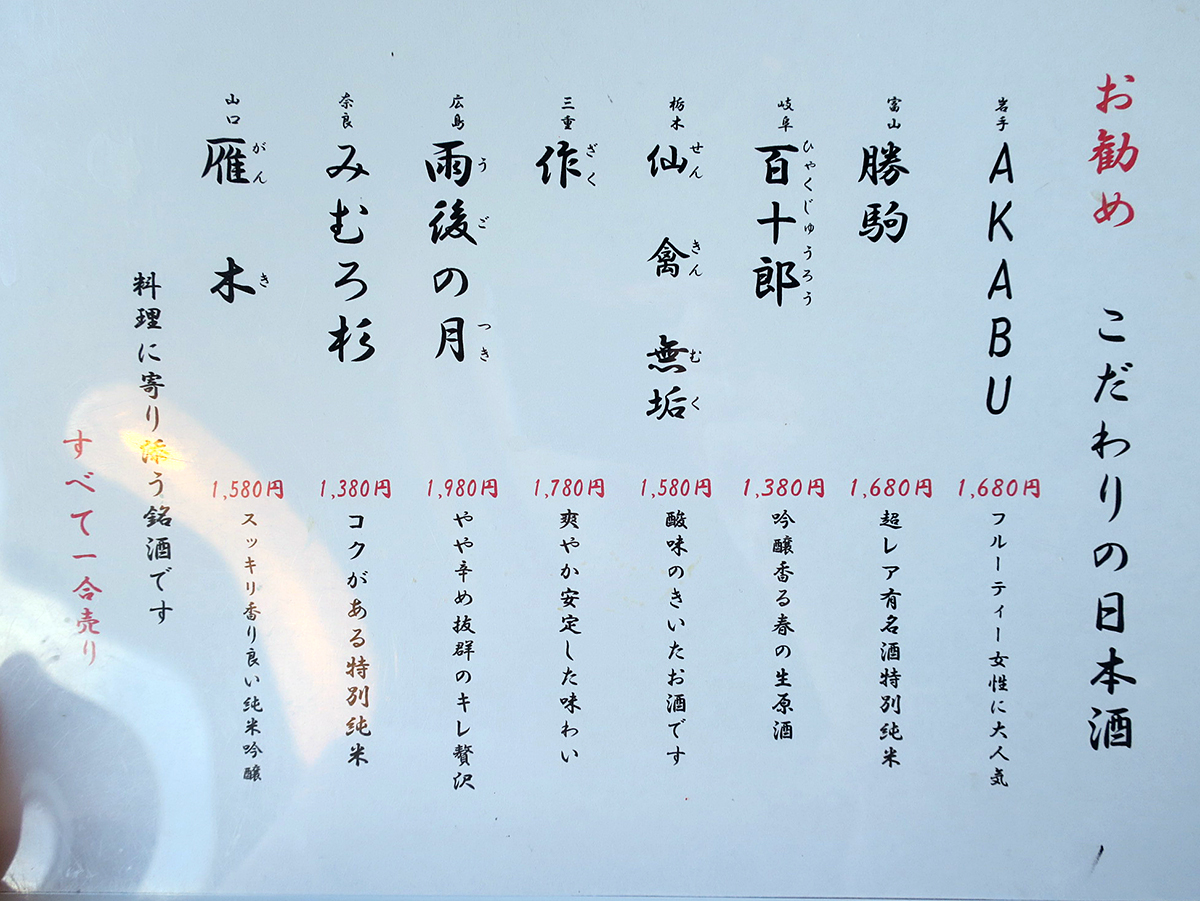 お勧め こだわりの日本酒
岩手 AKABU 1,680円 フルーティー女性に大人気
富山 勝駒 1,680円 超レア有名酒特別純米
岐阜 百十郎 ひゃくじゅうろう 1,380円 吟醸香る春の生原酒
栃木 仙禽 無垢 せんきん むく 1,580円 酸味のきいたお酒です
三重 作 ざく 1,780円 爽やか安定した味わい
広島 雨後の月 うご つき 1,980円 やや辛め抜群のキレ贅沢
奈良 みむろ杉 1,380円 コクがある特別純米
山口 雁木 がん き 1,580円 スッキリ香り良い純米吟醸
料理に寄り添う銘酒です
すべて一合売り